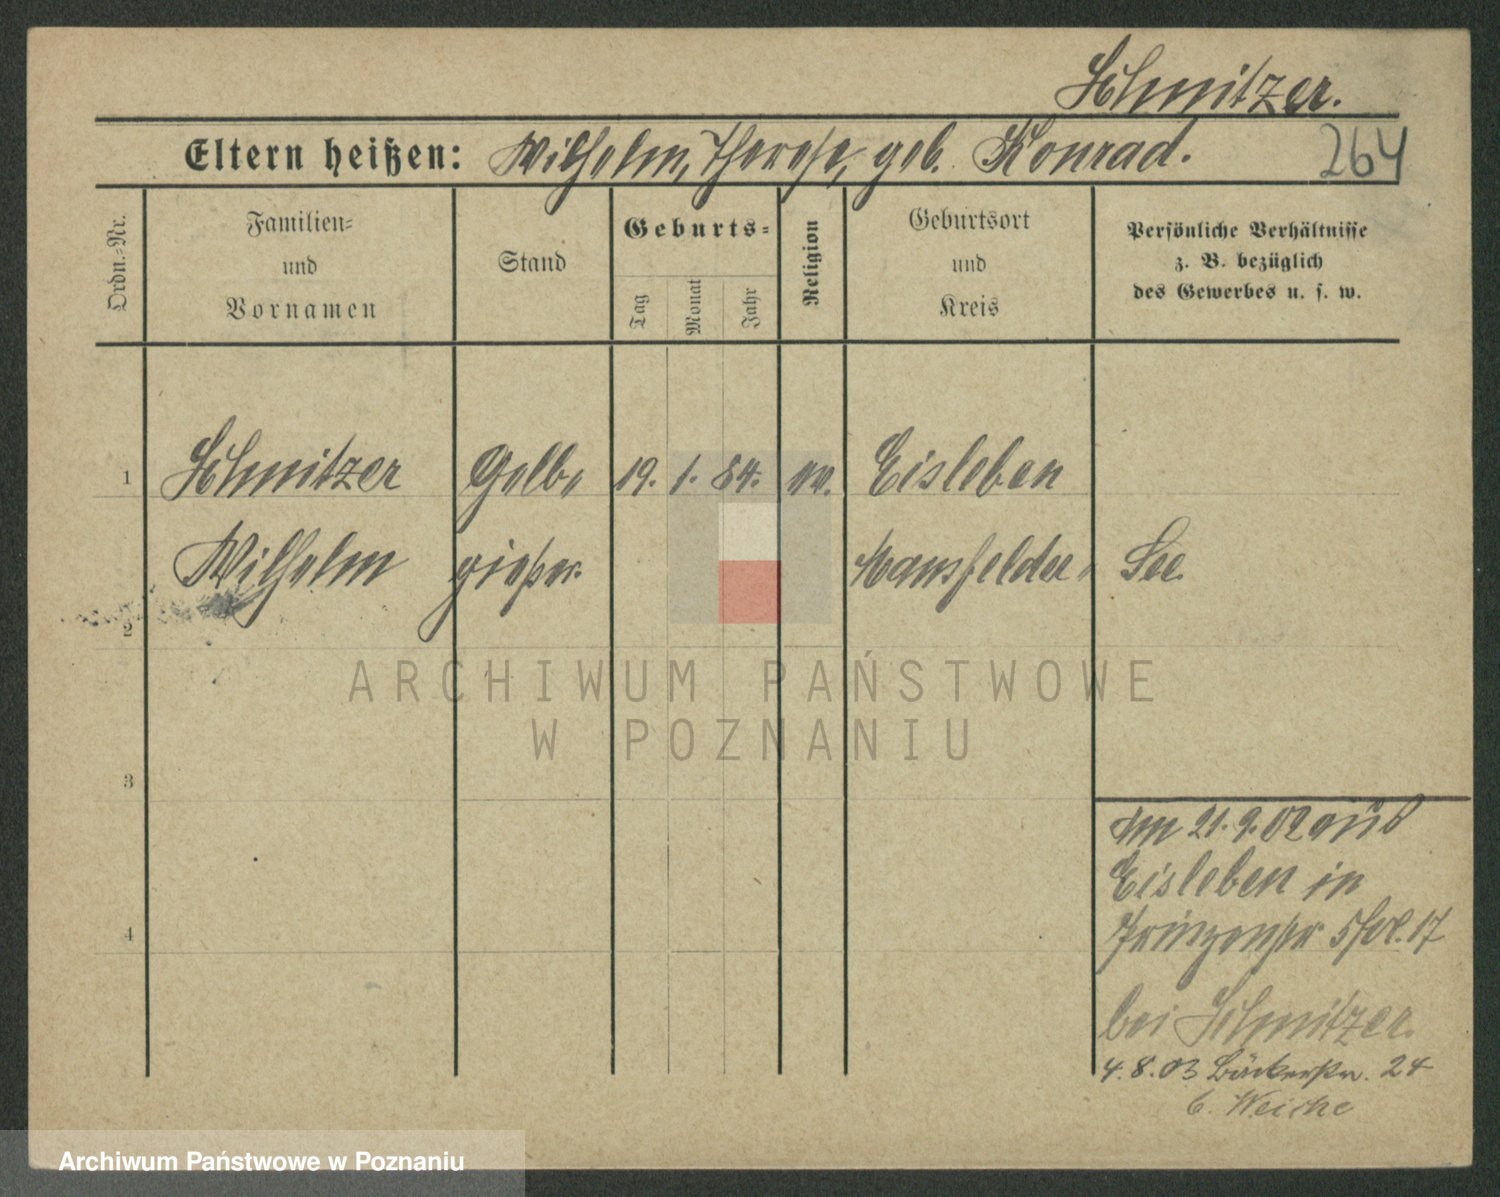 Schmitzer.
Eltern heißen: Wilhelm, Therese, geb. Konrad.
264
Ordn.-Nr.
Familien-
und
Vornamen
Stand
Geburts-
Tag
Monat
Jahr
Religion
Geburtsort
und
Kreis
Persönliche Verhältnisse
z. B. bezüglich
des Gewerbes u. s. w.
1 Schmitzer Gelb- 19. 1. 84. ev. Eisleben
Wilhelm gießer. Mansfelder See.
2
3
4
Am 21.9.02 aus
Eisleben in
Prinzenstr 5 17
bei Schmitzer.
4.8.03 Bäckerstr. 24
b. Weiche
ARCHIWUM PAŃSTWOWE
W POZNANIU
Archiwum Państwowe w Poznaniu